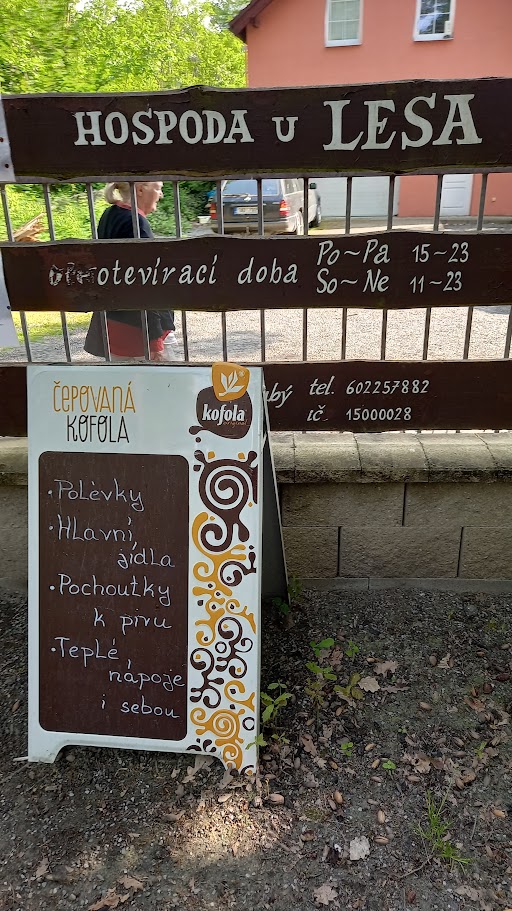 HOSPODA U LESA
otevírací doba
Po~Pa 15-23
So~Ne 11-23
tel. 602257882
IČ 15000028
ČEPOVANÁ
KOFOLA
kofola
original
• Polévky
• Hlavní
jídla
• Pochoutky
k pivu
• Teplé
nápoje
i sebou